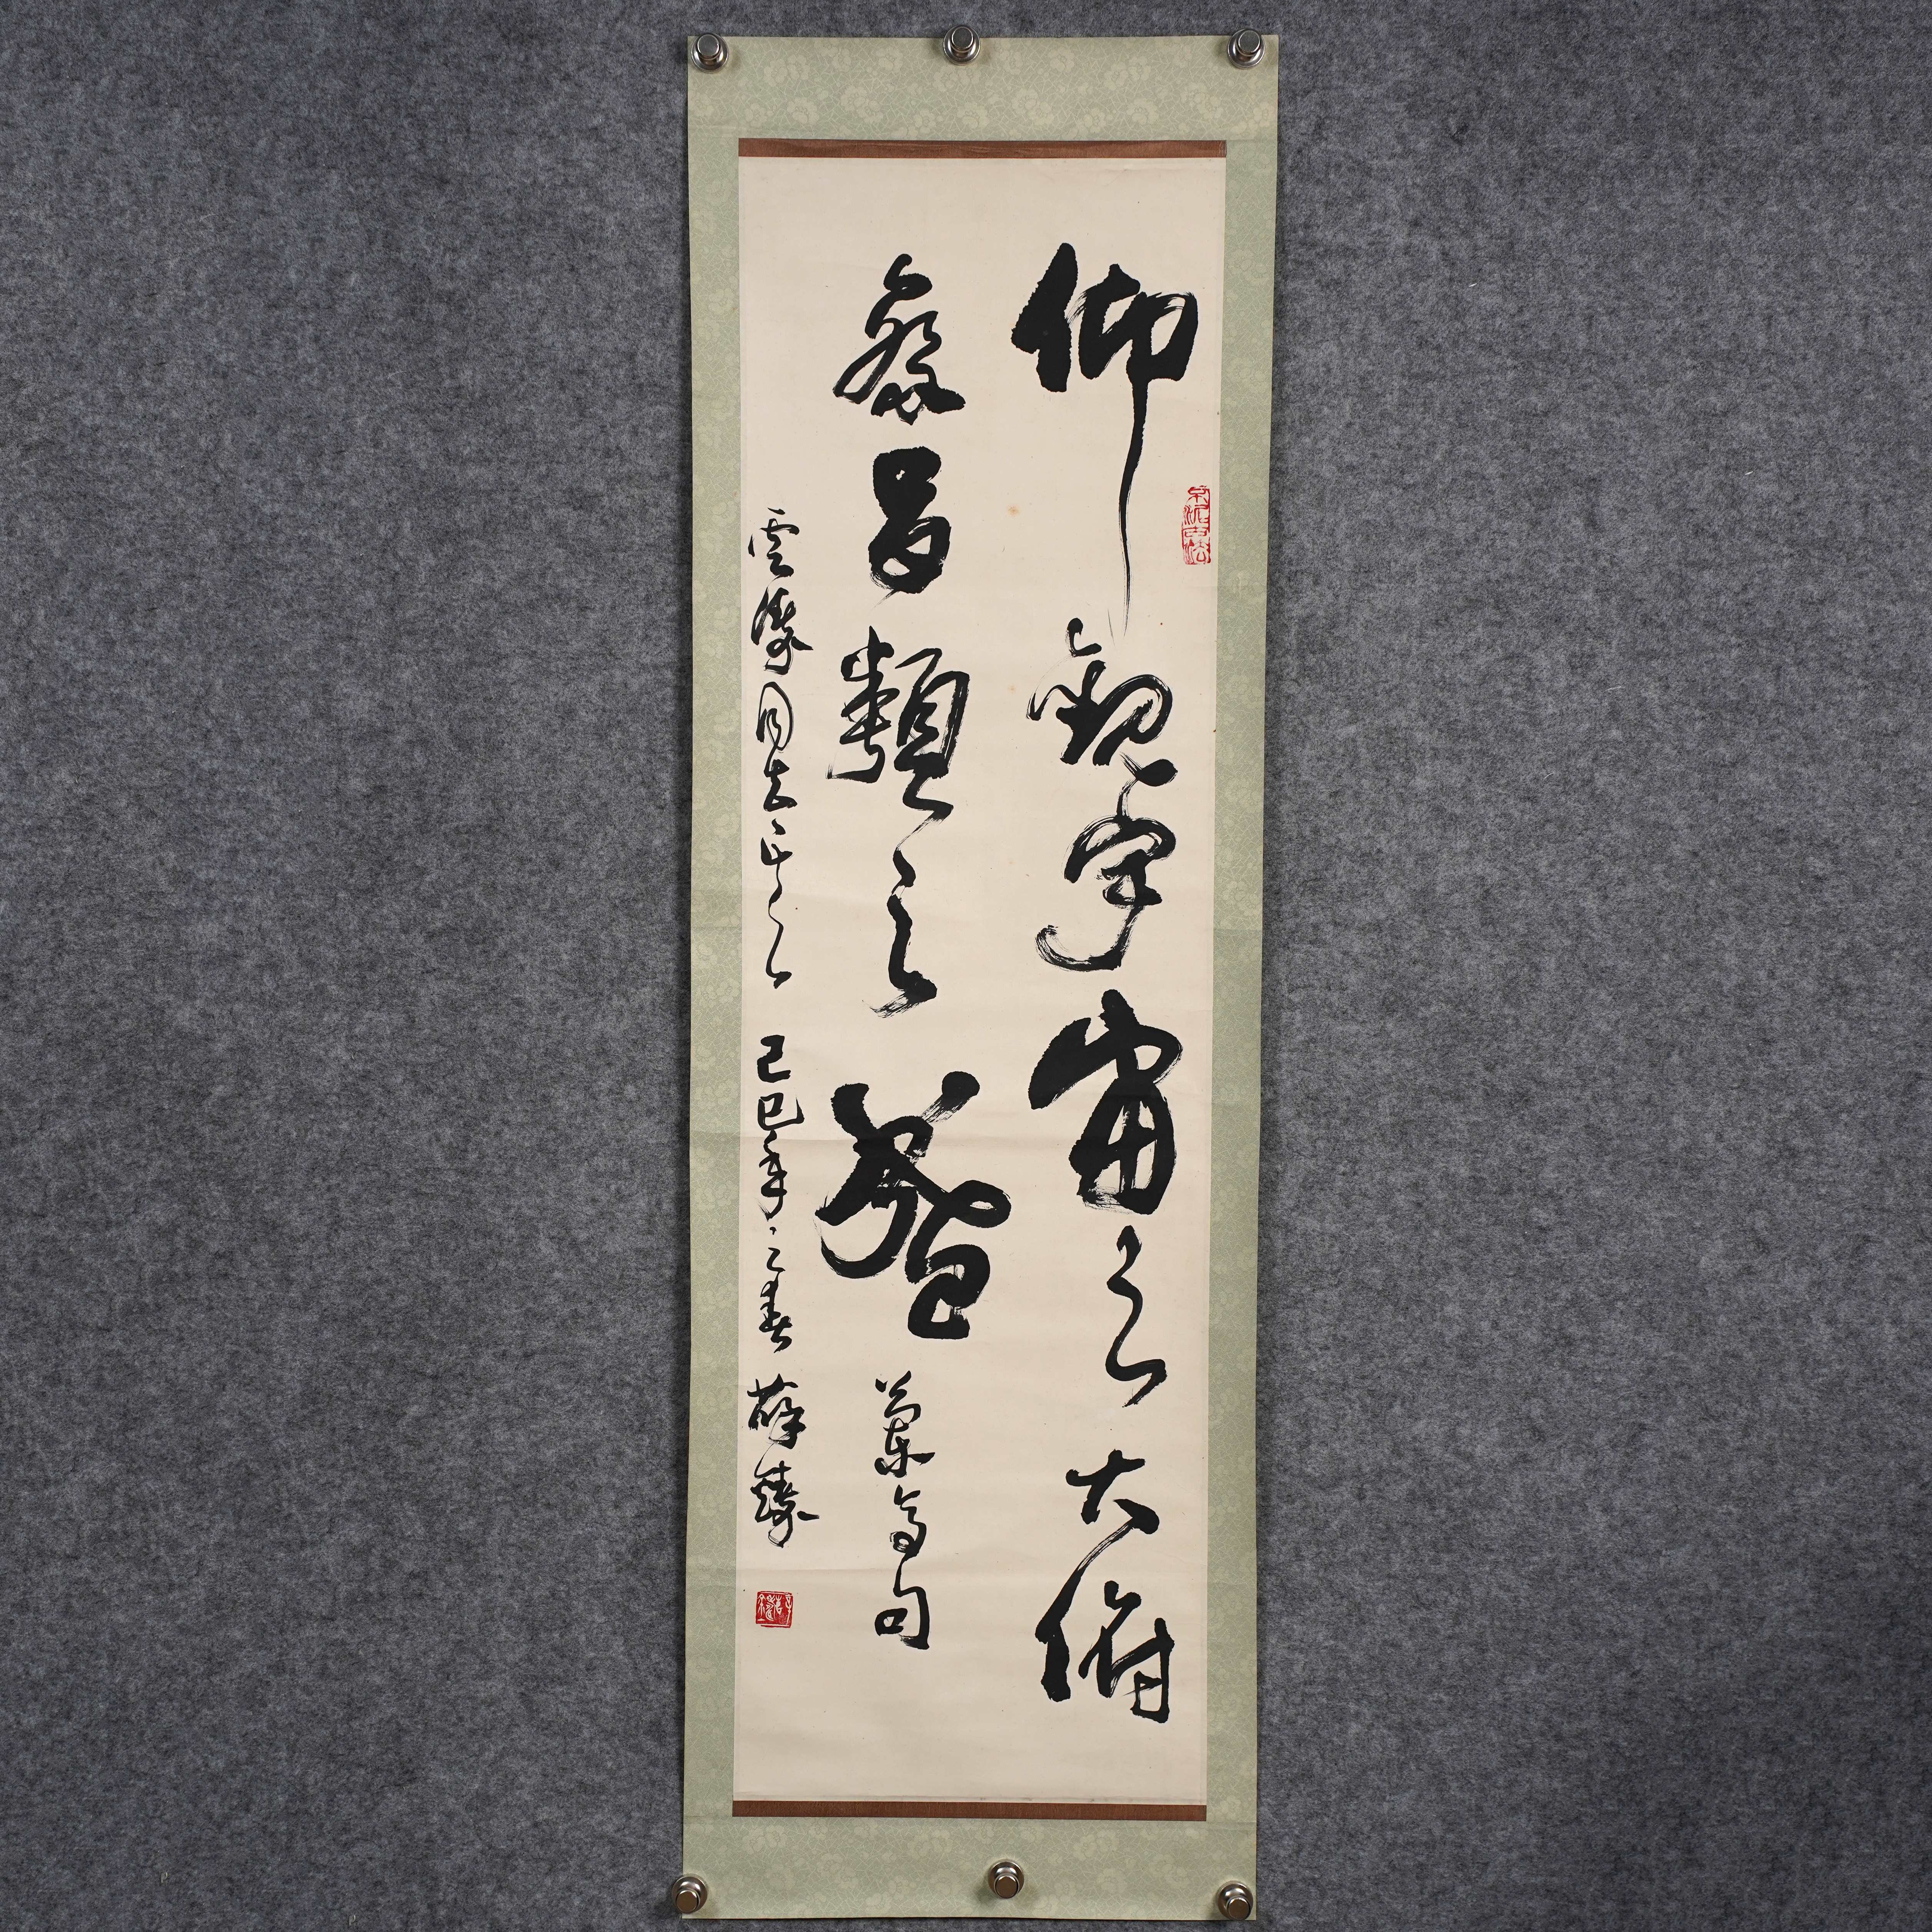 仰觀宇宙之大俯
察品類之盛 蘭亭句
雲濤同志正之 己巳年之春 薛鑄